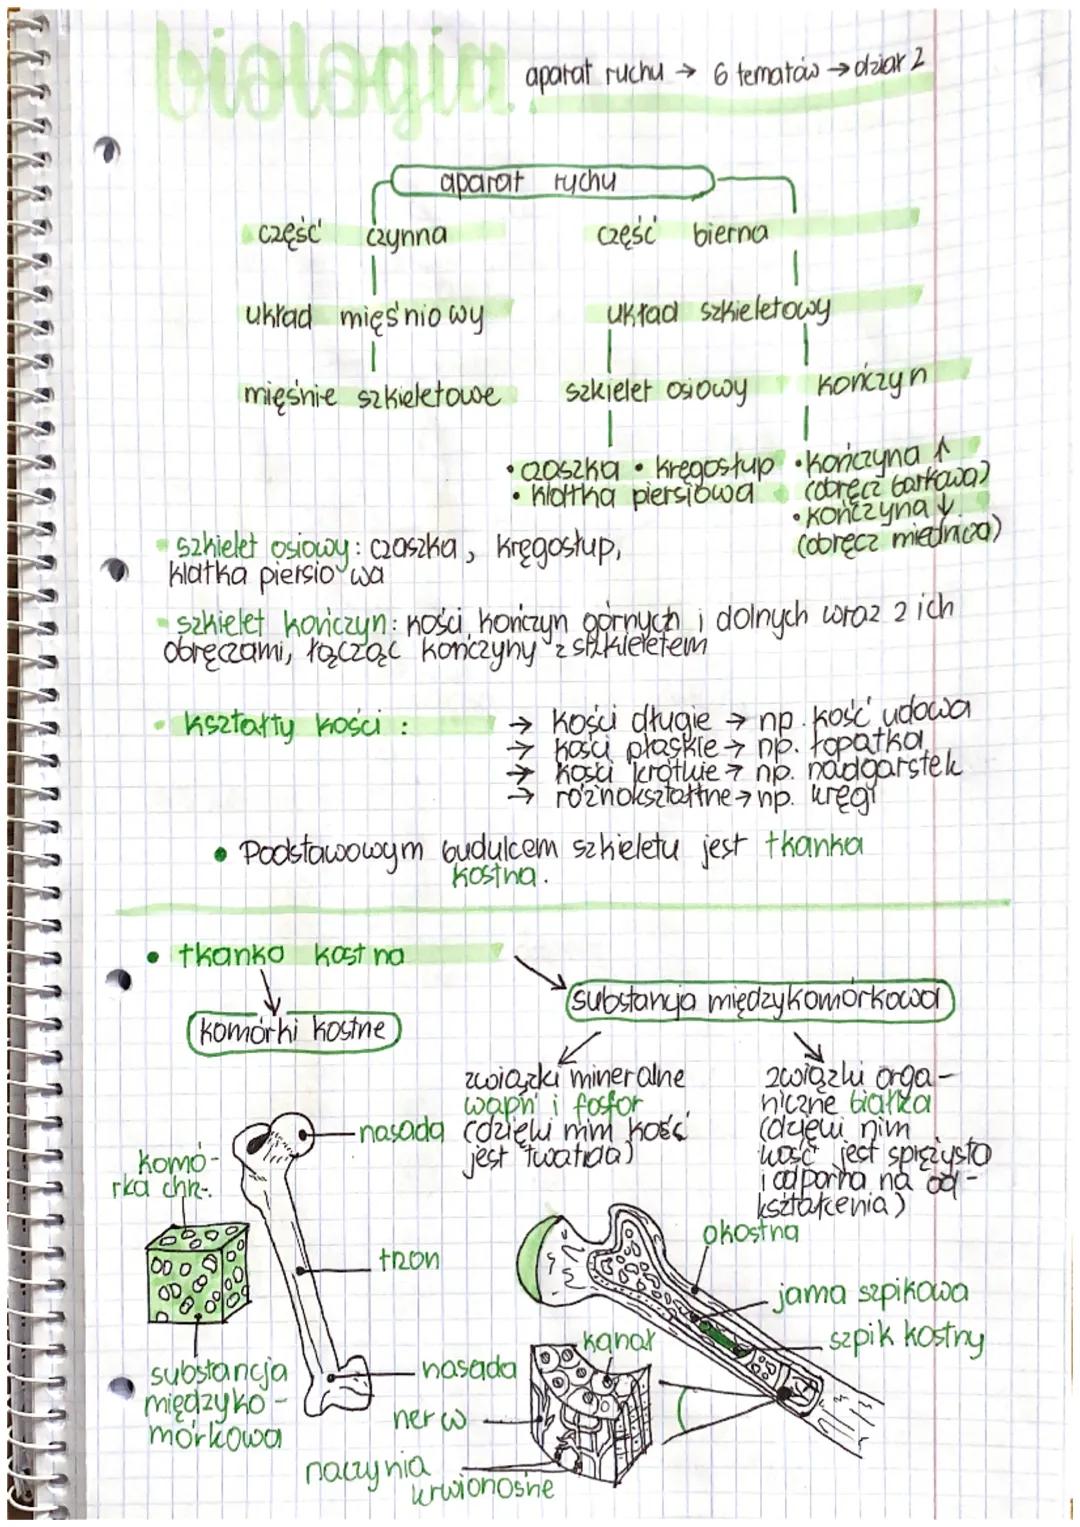 biologia
aparat ruchu → 6 tematów → dział 2
aparat ruchu
część czynna
część bierna
układ mięśniowy
układ szkieletowy
mięśnie szkieletowe
szkielet osiowy
kończyn
• czaszka • kręgosłup
• klatka piersiowa
• kończyna ↑
(obręcz barkowa)
• kończyna ↓
(obręcz miednicza)
szkielet osiowy: czaszka, kręgosłup,
klatka piersiowa
szkielet kończyn: kości kończyn górnych i dolnych wraz z ich
obręczami, łącząc kończyny z szkieletem
kształty kości :
→ kości długie → np. kość udowa
→ kości płaskie → np. łopatka
→ kości krótkie → np. nadgarstek
→ różnokształtne → np. kręgi
• Podstawowym budulcem szkieletu jest tkanka
kostna.
• tkanka kostna
substancja międzykomórkowa
komórki kostne
związki mineralne
wapń i fosfor
(dzięki nim kość
jest twarda)
związki orga-
niczne białka
(dzięki nim
kość jest sprężysta
i odporna na od-
kształcenia)
nasada
komó-
rka chrz.
trzon
nasada
substancja
międzyko-
mórkowa
okostna
jama szpikowa
szpik kostny
kanał
nerw
naczynia
krwionośne